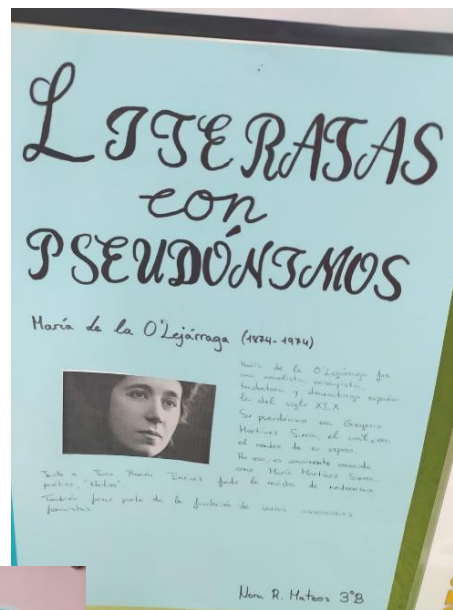 LITERATAS
con
PSEUDÓNIMOS
María de la O'Lejárraga (1874-1974)
María de la O'Lejárraga fue
una novelista, ensayista,
traductora y dramaturga españo-
la del siglo XIX
Su pseudónimo era Gregorio
Martínez Sierra, el cual era
el nombre de su esposo.
Por eso, es comúnmente conocida
como María Martínez Sierra.
Junto a Juan Ramón Jiménez fundó la revista de modernismo
poético, "Helios"
También formó parte de la fundación de varias asociaciones
feministas
Nora R. Mateos 3ºB